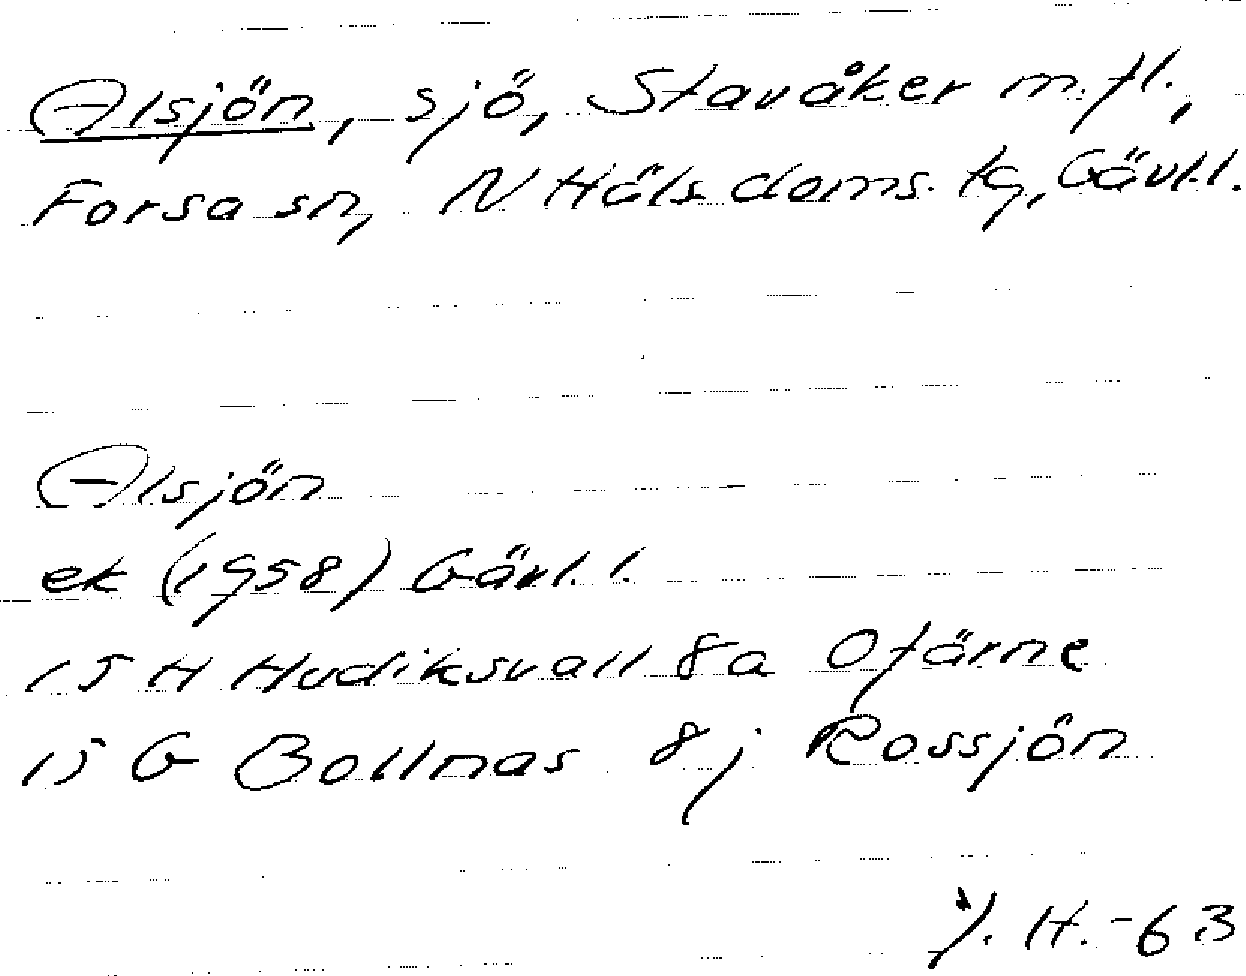 Alsjön, sjö, Stavåker m.fl.,
Forsa sn, N Häls. doms. tg, Gävl.l.
Alsjön
ek (1958) Gävl.l.
15 H Hudiksvall 8a Ofärne
15 G Bollnas 8j Rossjön
H.-63